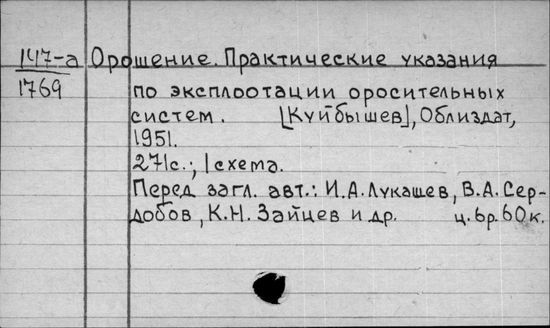 147-а Орошение. Практические указания
1769 по эксплоотации оросительных
систем. [Куйбышев], Облиздат,
1951.
271с.; 1 схема.
Перед загл. авт.: И.А.Лукашев, В.А.Сер-
добов, К.Н. Зайцев и др. ц. 6р.60к.